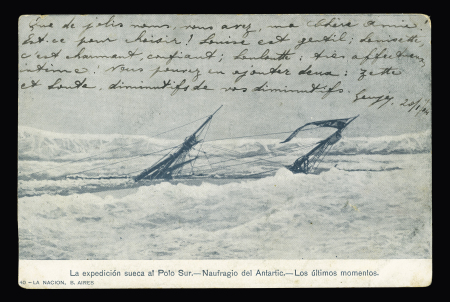 Que de jolis noms, vous avez, ma chère amie.
Est-ce pour choisir! Louise est gentil; Louisette
c'est charmant, confiant; Loulotte: très affectueux
intime: Vous pouvez en ajouter deux: Zette
et Loute, diminutifs de vos diminutifs.
La expedición sueca al Polo Sur.—Naufragio del Antartic.—Los últimos momentos.
LA NACION, B. AIRES